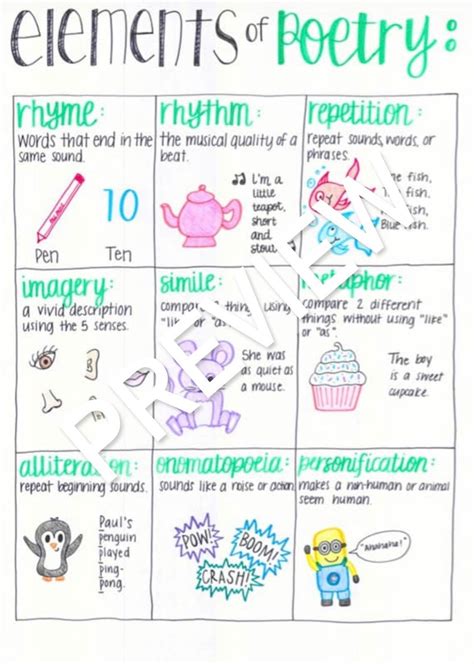 elements of Poetry:
rhyme:
words that end in the
same sound.
10
Pen
Ten
rhythm:
the musical quality of a
beat.
I'm a
little
teapot,
short
and
stout
repetition:
repeat sounds, words, or
phrases.
fish,
fish,
fish,
Blue fish.
imagery:
a vivid description
using the 5 senses.
simile:
compare 2 things using
"like" or "as".
She was
as quiet as
a mouse.
metaphor:
compare 2 different
things without using "like"
or "as".
The boy
is a sweet
cupcake.
alliteration:
repeat beginning sounds.
Paul's
penguin
played
ping-
pong.
onomatopoeia:
sounds like a noise or action.
POW!
BOOM!
CRASH!
personification:
makes a non-human or animal
seem human.
PREVIEW